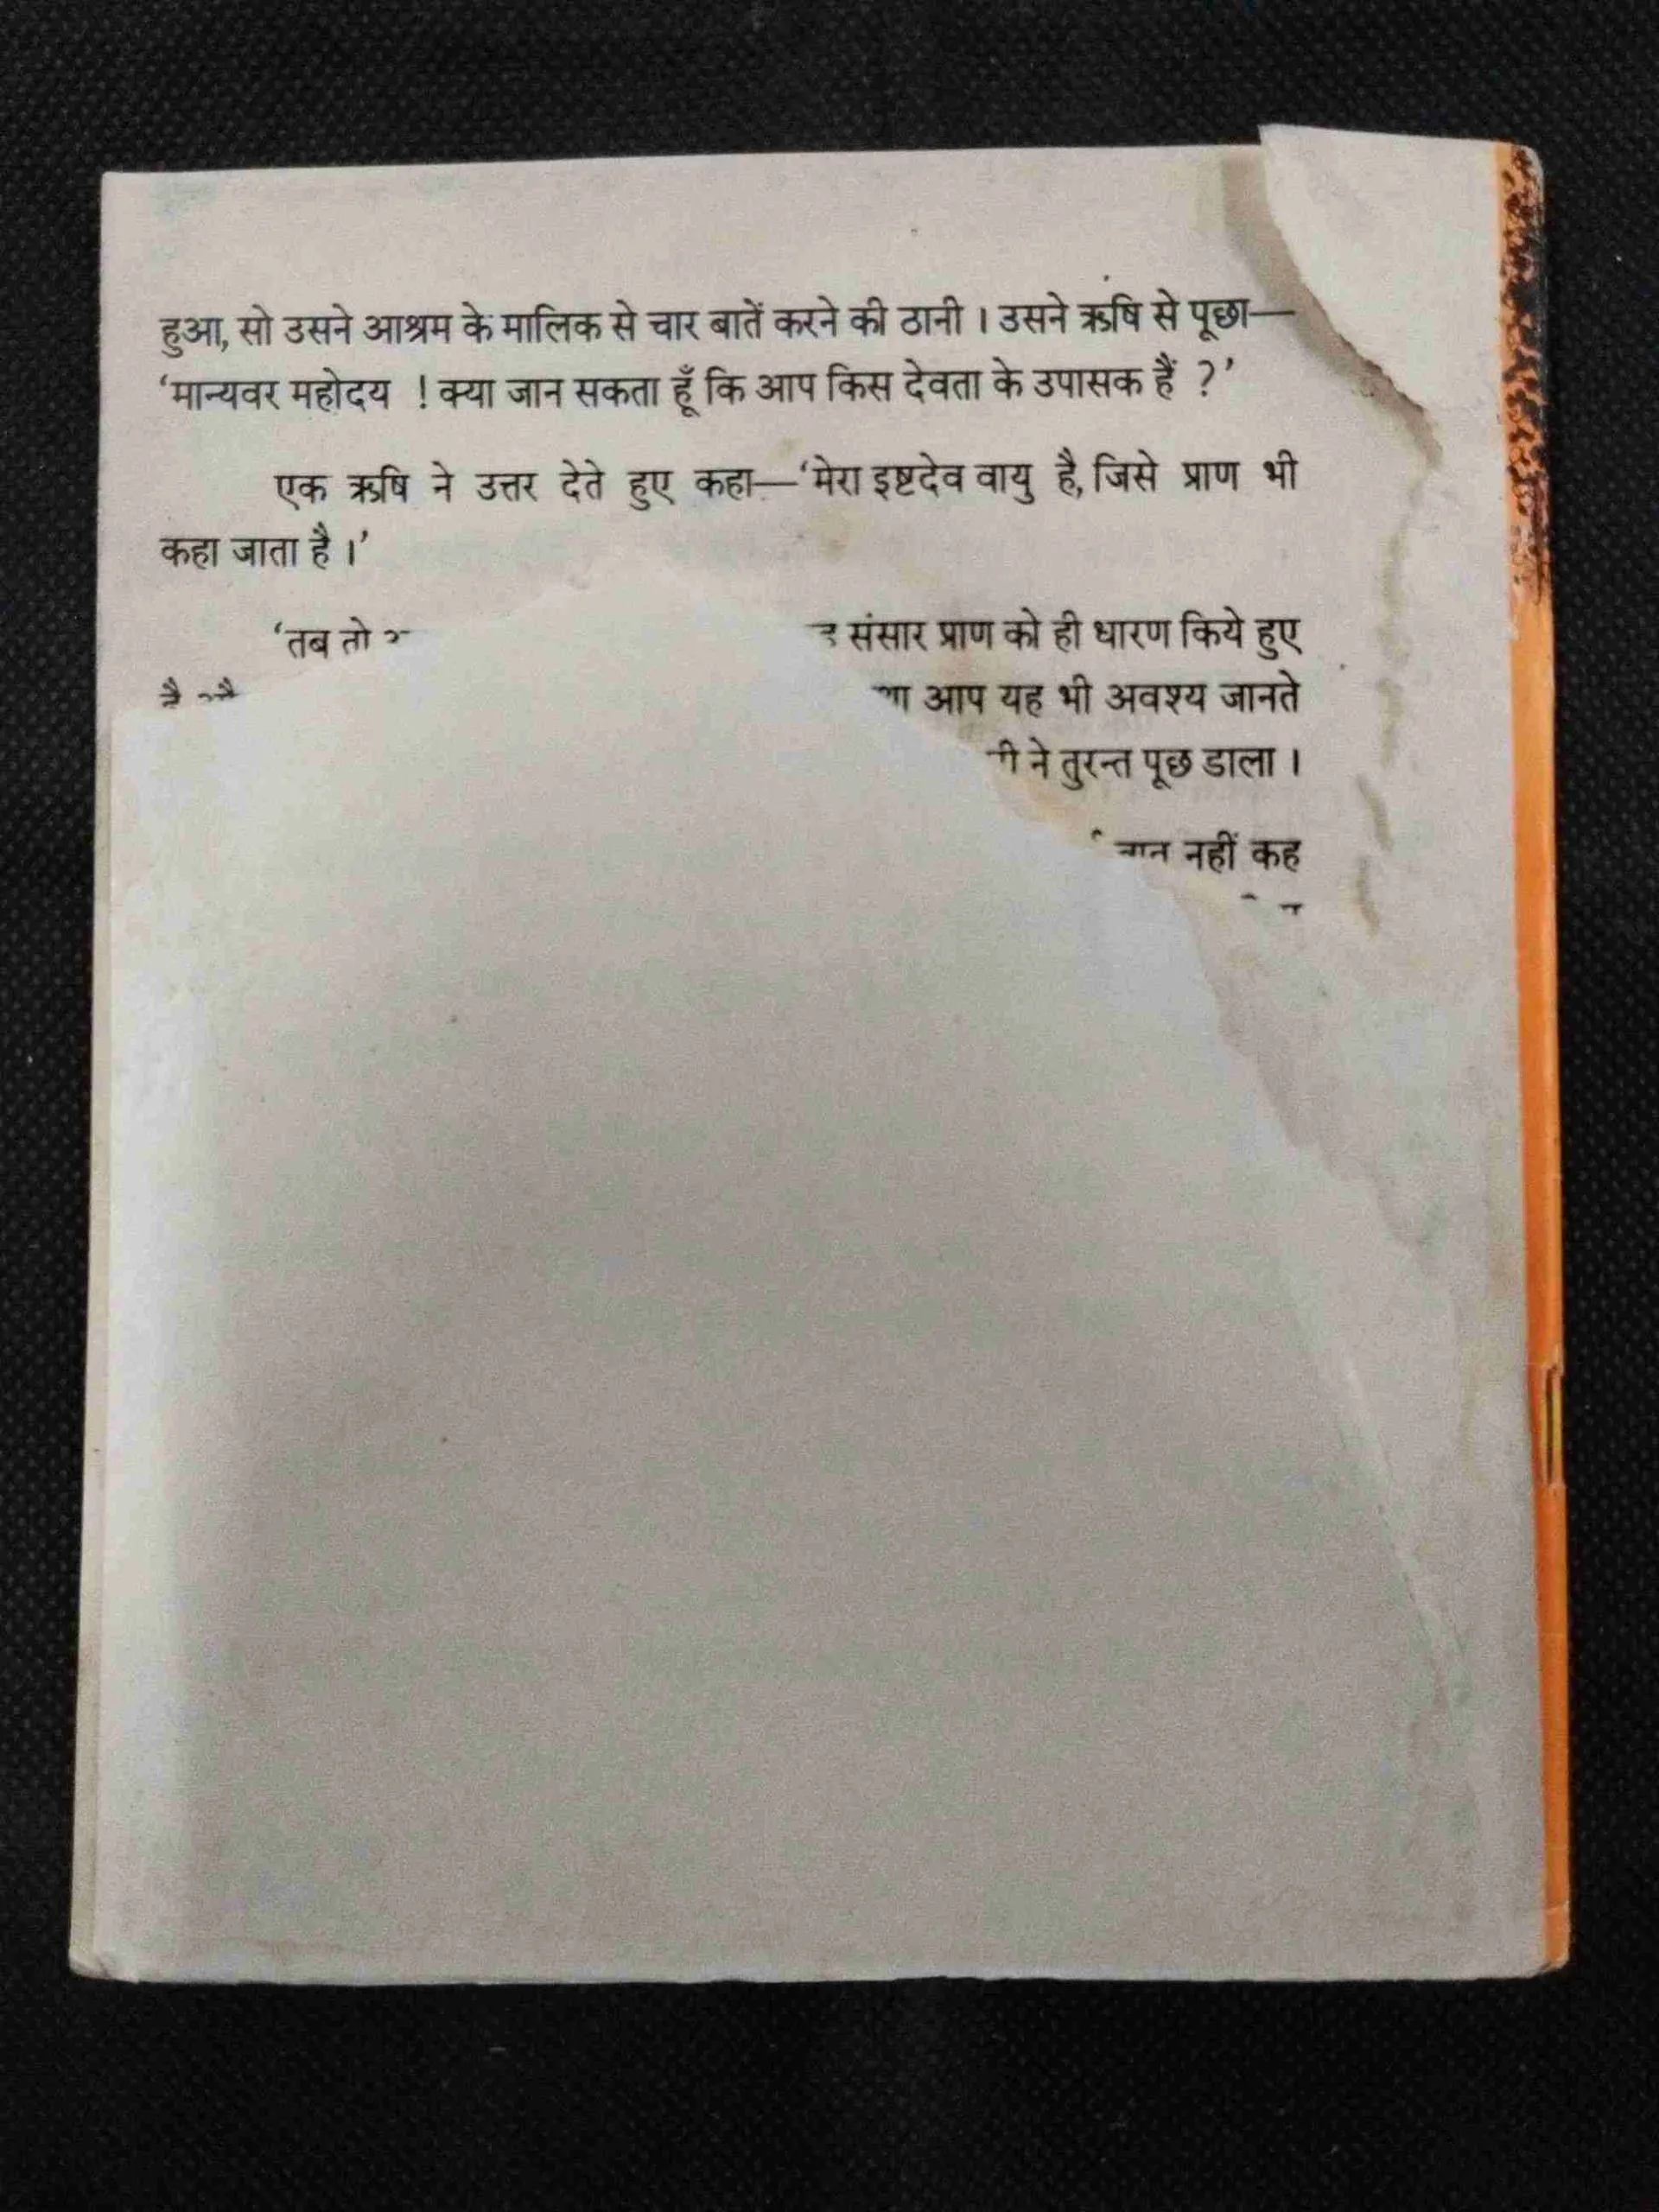 हुआ, सो उसने आश्रम के मालिक से चार बातें करने की ठानी । उसने ऋषि से पूछा—
‘मान्यवर महोदय ! क्या जान सकता हूँ कि आप किस देवता के उपासक हैं ?’
एक ऋषि ने उत्तर देते हुए कहा—‘मेरा इष्टदेव वायु है, जिसे प्राण भी
कहा जाता है ।’
‘तब तो संसार प्राण को ही धारण किये हुए
आप यह भी अवश्य जानते
ने तुरन्त पूछ डाला ।
नहीं कह